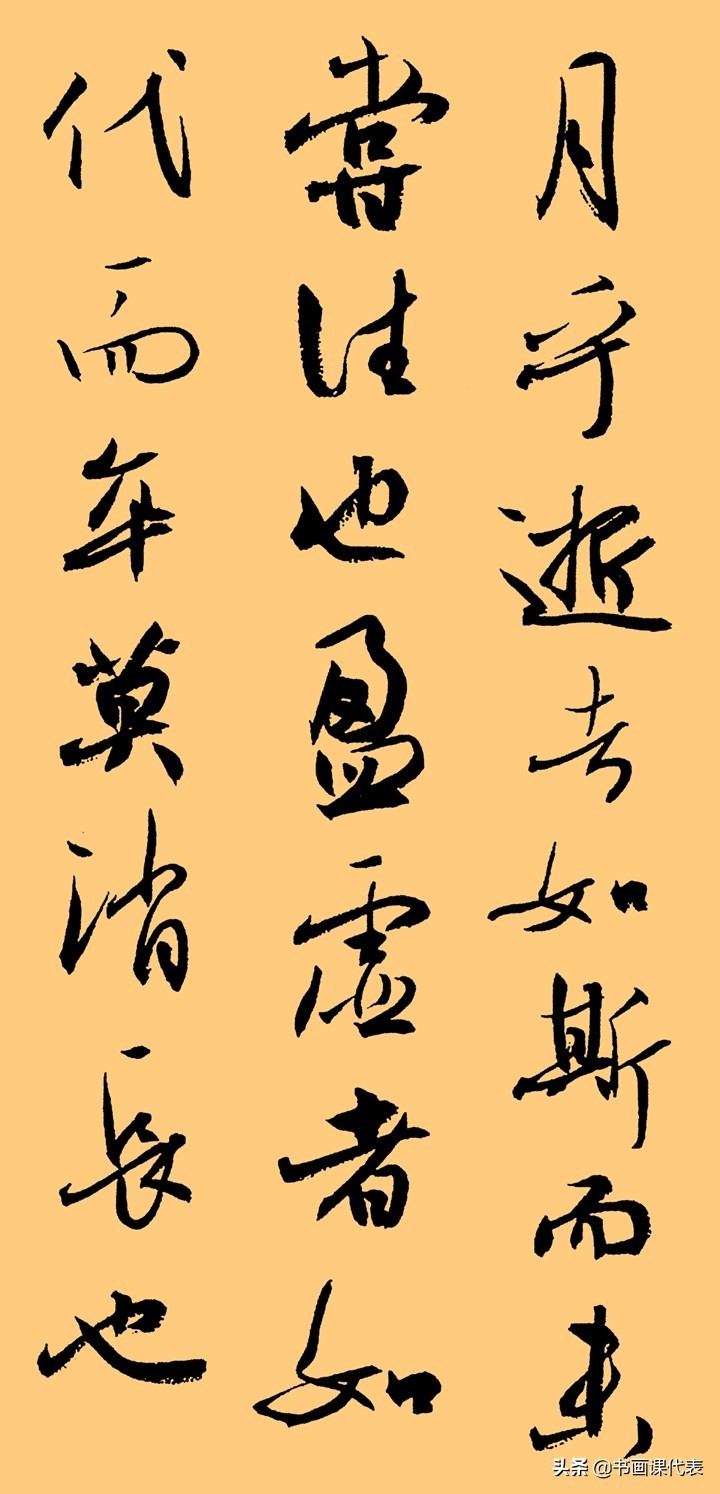 月乎逝者如斯而未
嘗往也盈虛者如
代而卒莫消長也
头条 @书画课代表